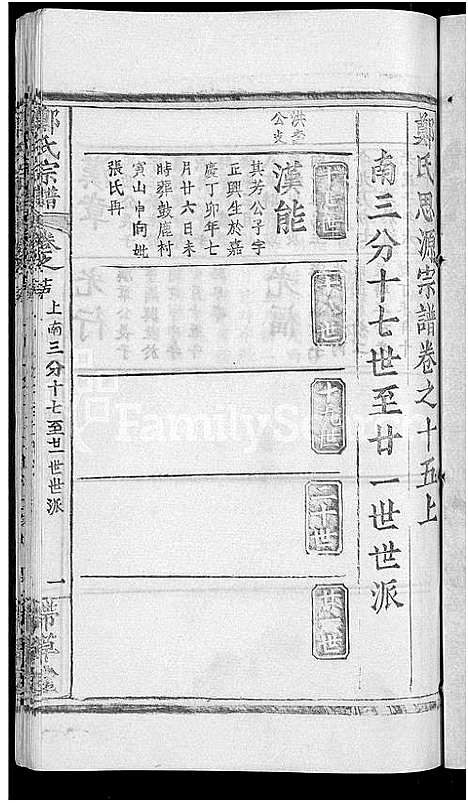 鄭氏思源宗譜卷之十五上
南三分十七世至廿一世世派
十七世
十八世
十九世
二十世
廿一世
公支
漢能
其芳公子字
正興生於嘉
慶丁卯年七
月廿六日未
時葬鼓鹿村
寅山申向妣
張氏冉
鄭氏宗譜
卷之
上南三分十七至廿一世世派
一
FamilySearch